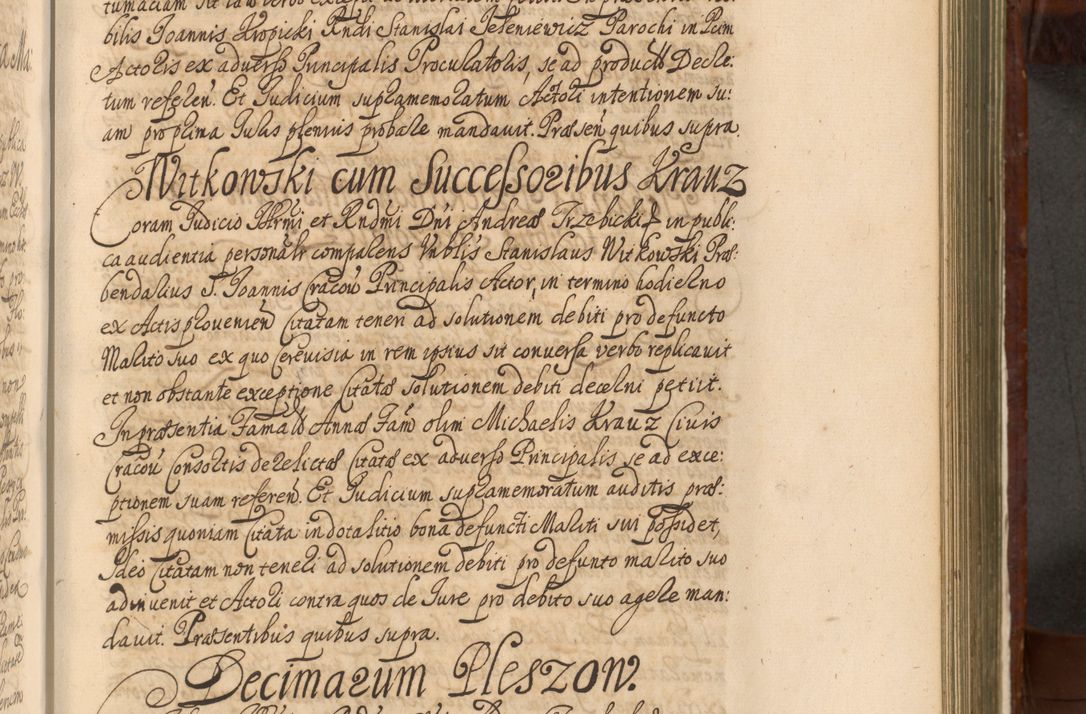 bilis Joannis Kropicki Rndi Stanislai Jeleniewicz Parochi in Pcim
Actoris ex adverso Principalis Procuratoris, se ad product Decre:
tum referen. Et Judicium supramemoratum Actori intentionem su:
am pro prima Juris plenius probare mandavit. Præsen quibus supra.
Witkowski cum Successoribus Krauz
Coram Judicio Illrmi et Rndmi Dni Andreæ Trzebicki in publi:
ca audientia personalr comparens Vnblis Stanislaus Witkowski Præ:
bendarius S. Joannis Cracov Principalis Actor, in termino hodierno
ex Actis provenien Citatam teneri ad solutionem debiti pro defuncto
Marito suo ex quo Cerevisia in rem ipsius sit conversa verbo replicavit
et non obstante exceptione Citatæ solutionem debiti decerni petiit.
In præsentia Famatæ Annæ Fam olim Michaelis Krauz Civis
Cracov Consortis derelictæ Citatæ ex adverso Principalis se ad exce:
ptionem suam referen. Et Judicium supramemoratum auditis præ:
missis quoniam Citata in dotalitio bona defuncti Mariti sui possidet,
Ideo Citatam non teneri ad solutionem debiti pro defunto marito suo
adinvenit et Actori contra quos de Jure pro debito suo agere man:
davit. Præsentibus quibus supra.
Decimarum Pleszow.